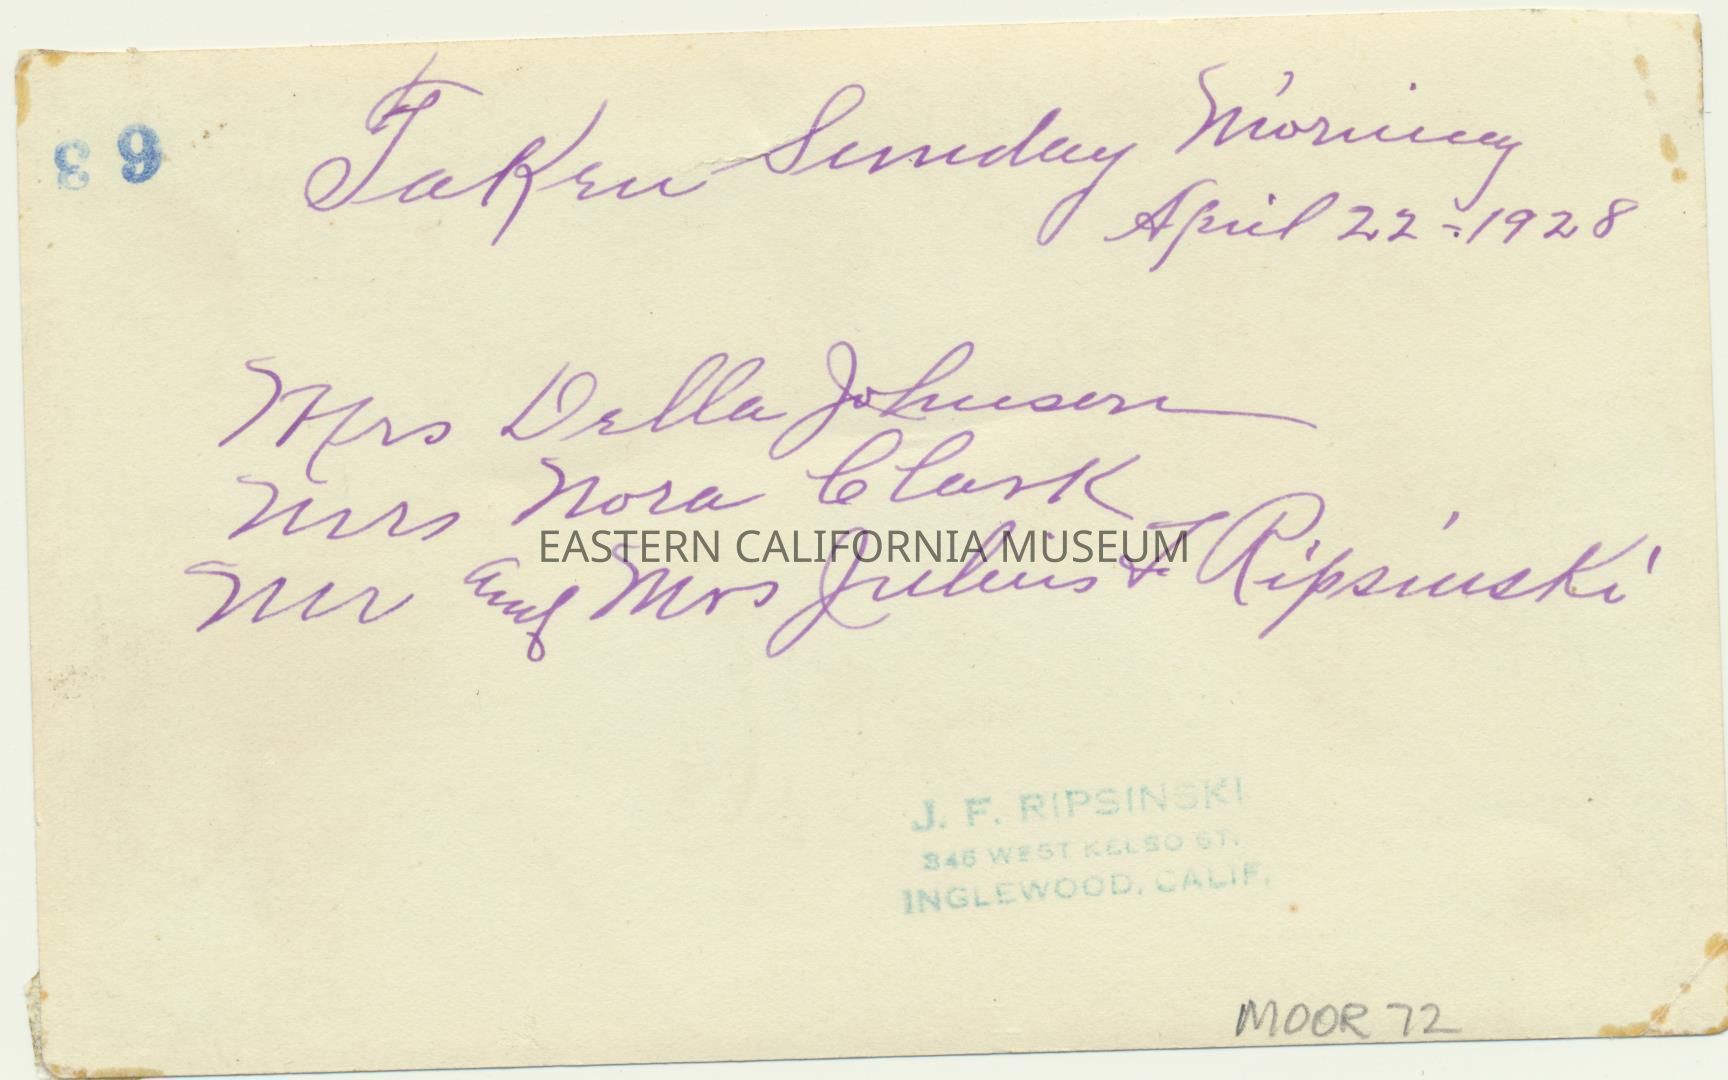 39
Taken Sunday Morning
April 22-1928
Mrs Della Johnson
Mrs Nora Clark
Mr and Mrs Julius F Ripsinski
EASTERN CALIFORNIA MUSEUM
J. F. RIPSINSKI
345 WEST KELSO ST.
INGLEWOOD, CALIF.
MOOR 72